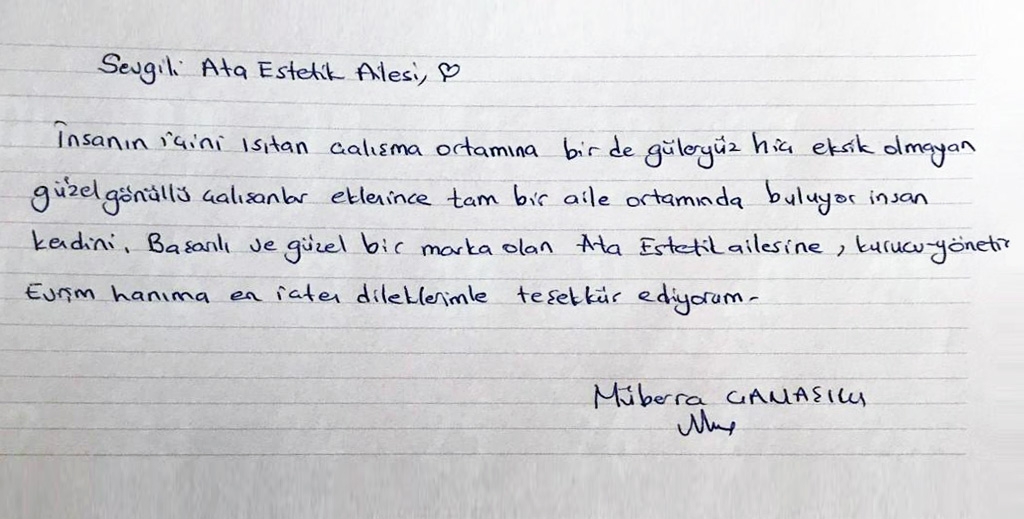 Sevgili Ata Estetik Ailesi, ♡
İnsanın içini ısıtan çalışma ortamına bir de güleryüz hiç eksik olmayan
güzel gönüllü çalışanlar eklenince tam bir aile ortamında buluyor insan
kendini. Başarılı ve güzel bir marka olan Ata Estetik ailesine, kurucu-yönetir
Evrim hanıma en içten dileklerimle teşekkür ediyorum-
Müberra